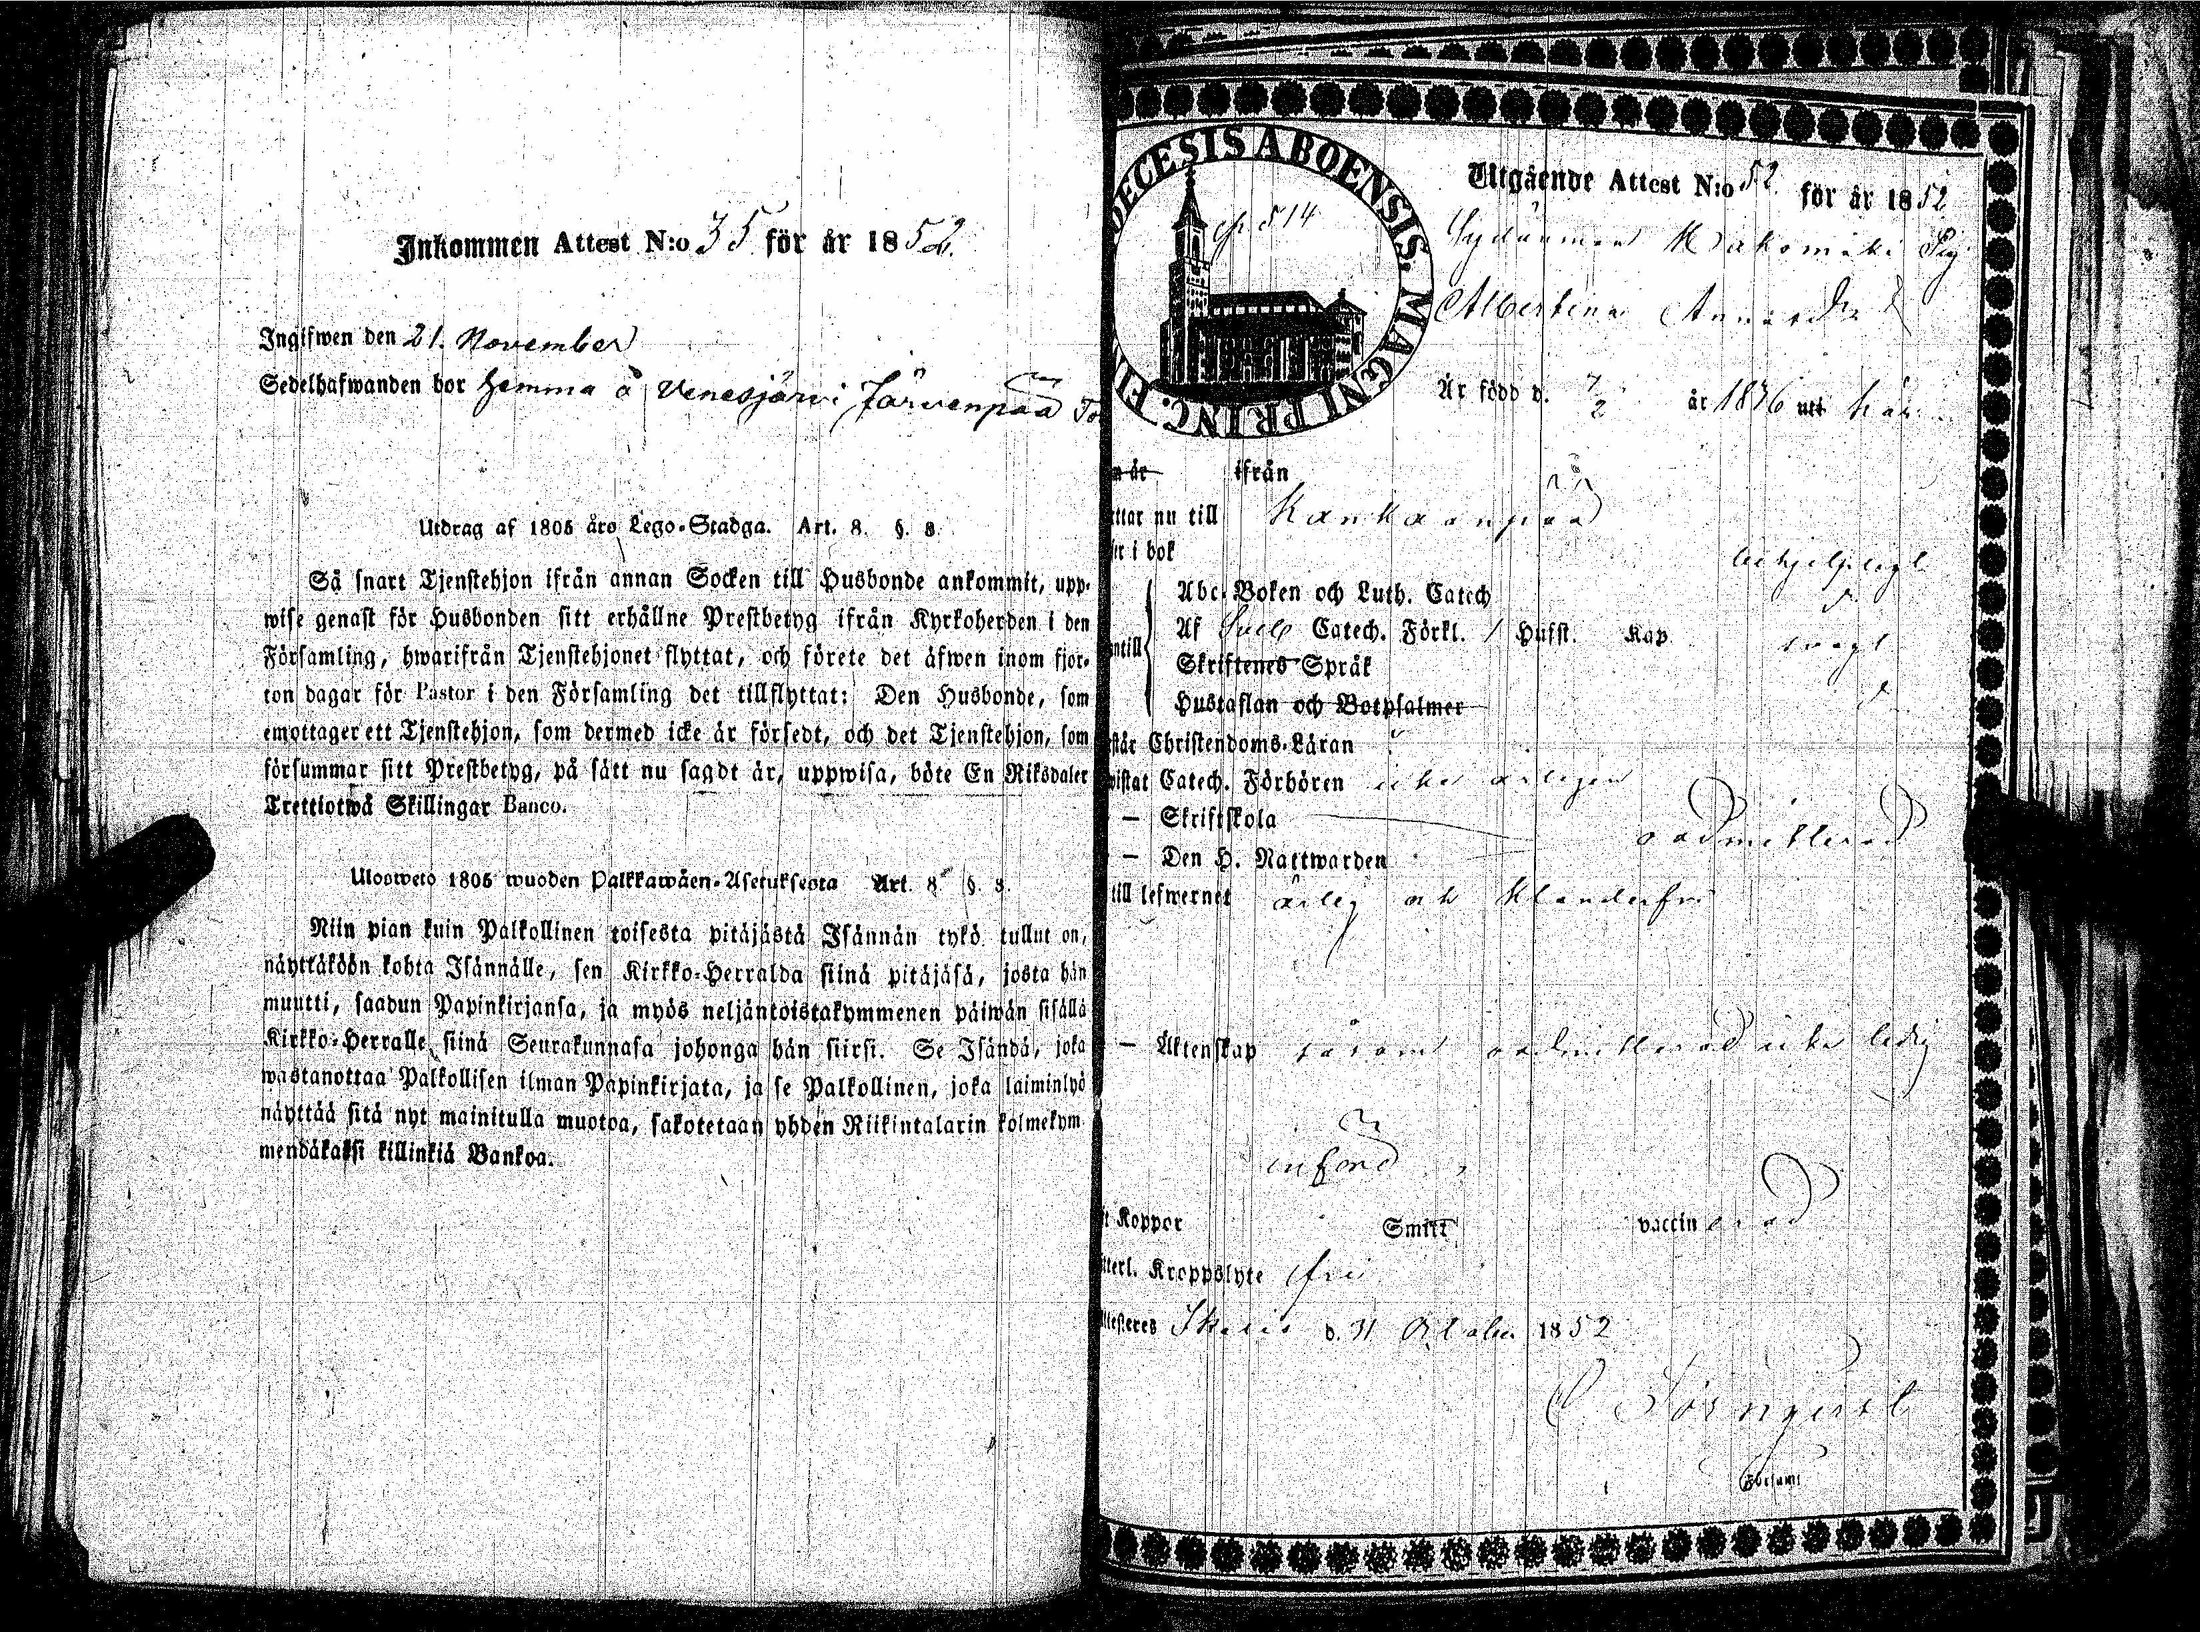 Inkommen Attest N:o 35 för år 1852.
Ingifwen den 21. November
Sedelhafwanden bor hemma å Venesjärvi Järvenpää To
Utdrag af 1805 års Lego-Stadga. Art. 8. §. 8.
Så snart Tjenstehjon ifrån annan Socken till Husbonde ankommit, upp-
wise genast för Husbonden sitt erhållne Prestbetyg ifrån Kyrkoherden i den
Församling, hwarifrån Tjenstehjonet flyttat, och förete det äfwen inom fjor-
ton dagar för Pastor i den Församling det tillflyttat: Den Husbonde, som
emottager ett Tjenstehjon, som dermed icke är försedt, och det Tjenstehjon, som
försummar sitt Prestbetyg, på sätt nu sagdt är, uppwisa, böte En Riksdaler
Trettiotwå Skillingar Banco.
Ulosweto 1805 wuoden Palkkawäen-Asetuksesta Art. 8 §. 8.
Niin pian kuin Palkollinen toisesta pitäjästä Isännän tykö tullut on,
näyttäköön kohta Isännälle, sen Kirkko-Herralda siinä pitäjäsä, josta hän
muutti, saadun Papinkirjansa, ja myös neljäntoistakymmenen päiwän sisällä
Kirkko-Herralle siinä Seurakunnasa johonga hän siirsi. Se Isändä, joka
wastanottaa Palkollisen ilman Papinkirjata, ja se Palkollinen, joka laiminlyö
näyttää sitä nyt mainitulla muotoa, sakotetaan yhden Riikintalarin kolmekym
mendäkaksi killinkiä Bankoa.
DECESIS ABOENSIS. MAGNI PRINC. FI
514
Utgående Attest N:o 52 för år 1852
Sydänmaa Makomäki Pig
Albertina Annasd:r
Är född d. 7/2 år 1836 uti här
år ifrån
ttar nu till Kankaanpää
er i bok behjelpligt
Abc-Boken och Luth. Catech
ntill Af Sveb Catech. Förkl. / Hufst. Kap svagt
Skriftenes Språk
Hustaflan och Botpsalmer
står Christendoms-Läran
wistat Catech. Förhören icke årligen
— Skriftskola
— Den H. Nattwarden oadmitterad
till lefwernet ärlig och klanderfri
— Äktenskap såsom oadmitterad icke ledig
införd
t Koppor Smitt vaccinerad
tterl. Kroppslyte fri
ttesteres Ikalis d. 31 October 1852